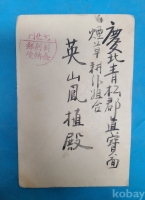 慶北青松郡眞寶面
煙草耕作組合
英山鳳植殿
kobay